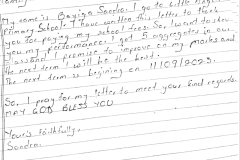 family.
My name is Bayiga Sandra. I go to Little
Primary School. I have written this letter to thank
you for paying my school fees. So, I want to show
you my performance. I got 5 aggregates in our
class and I promise to improve on my marks and
the next term I will be the best.
The next term is begining on 11/09/2023.
So, I pray for my letter to meet your kind regards.
MAY GOD BLESS YOU
Your's faithfully,
Sandra.